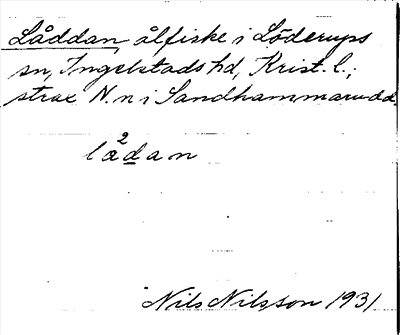 Låddan, ålfiske i Löderups
sn, Ingelstads hd, Krist. l.;
strax N. n i Sandhammarudd.
lå²dan
Nils Nilsson 1931